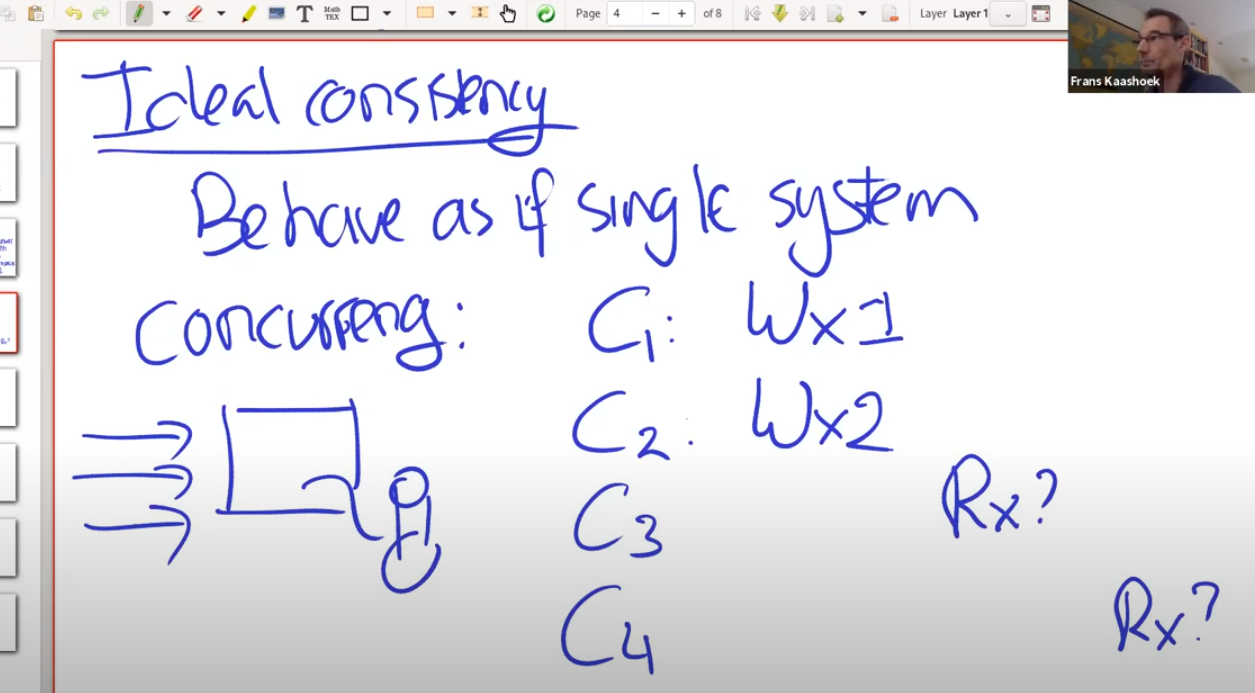 Page 4 - + of 8 Layer Layer 1
T Math TEX
Frans Kaashoek
Ideal consistency
Behave as if single system
Concurrency: C1: Wx1
C2: Wx2
C3 Rx?
C4 Rx?